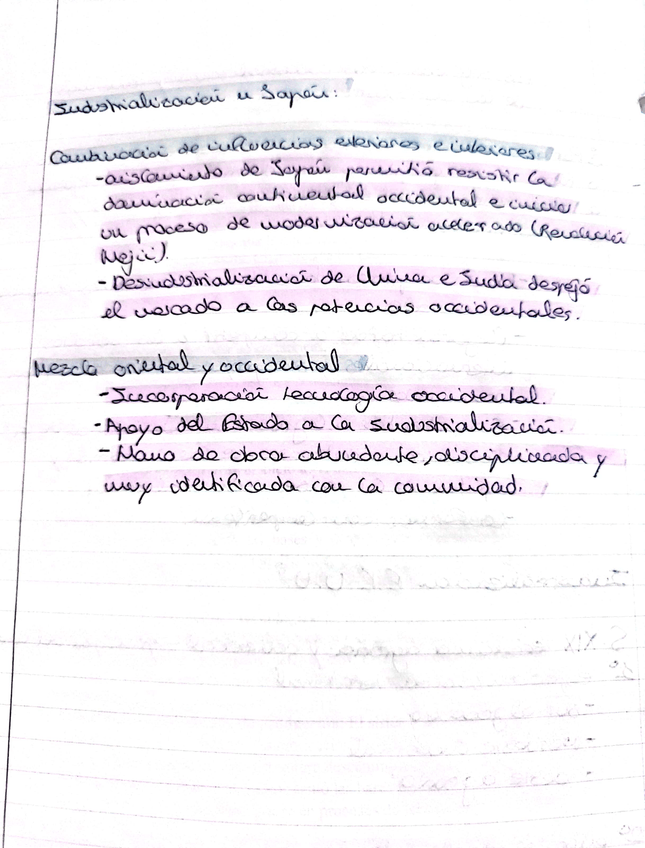 Industrialización u Japón:
Combinación de influencias exteriores e interiores
-aislamiento de Japón permitió resistir la
dominación continental occidental e iniciar
un proceso de modernización acelerado (Revolución
Mejii).
- Desindustrialización de China e India despejó
el mercado a las potencias occidentales.
Mezcla oriental y occidental
-Incorporación tecnología occidental.
-Apoyo del Estado a la industrialización.
- Mano de obra abundante, disciplinada y
muy identificada con la comunidad.